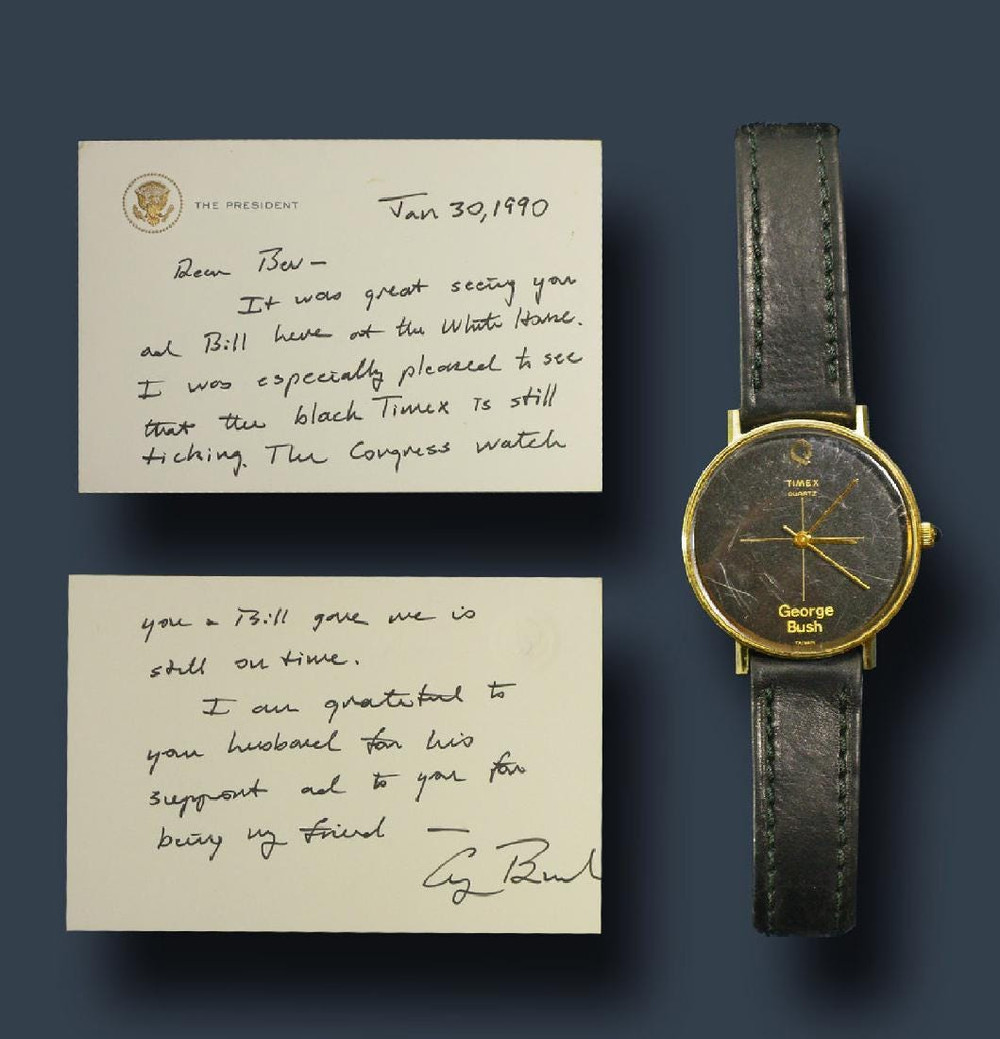 THE PRESIDENT
Jan 30, 1990
Dear Bev –
It was great seeing you
and Bill here at the White House.
I was especially pleased to see
that the black Timex is still
ticking. The Congress watch
you & Bill gave me is
still on time.
I am grateful to
your husband for his
support and to you for
being my friend –
G Bush
Q
TIMEX
QUARTZ
George
Bush